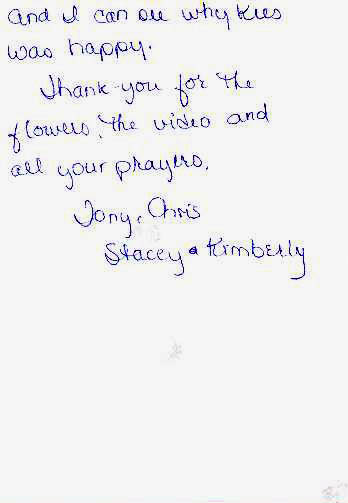 and I can see why Kris
was happy.
Thank you for the
flowers, the video and
all your prayers.
Tony, Chris
Stacey & Kimberly